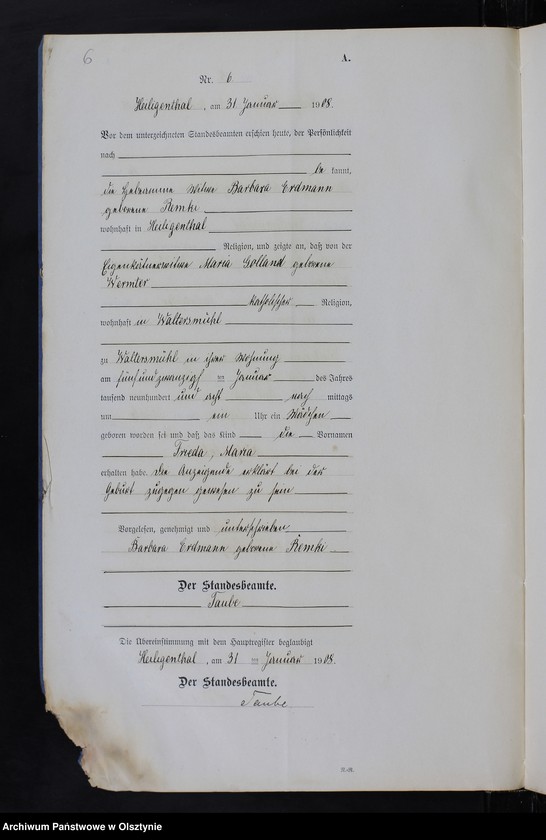 6
A.
Nr. 6
Heiligenthal, am 31 Januar 1908.
Vor dem unterzeichneten Standesbeamten erschien heute, der Persönlichkeit
nach
be kannt,
die Hebamme Witwe Barbara Erdmann
geborene Remki
wohnhaft in Heiligenthal
Religion, und zeigte an, daß von der
Eigenkätnerwitwe Maria Golland geborene
Wermter
katholischer Religion,
wohnhaft in Waltersmühl
zu Waltersmühl in ihrer Wohnung
am fünfundzwanzigsten Januar des Jahres
tausend neunhundert und acht nach mittags
um ein Uhr ein Mädchen
geboren worden sei und daß das Kind die Vornamen
Frieda, Maria
erhalten habe. Die Anzeigende erklärt bei der
Geburt zugegen gewesen zu sein
Vorgelesen, genehmigt und unterschrieben
Barbara Erdmann geborene Remki
Der Standesbeamte.
Taube
Die Übereinstimmung mit dem Hauptregister beglaubigt
Heiligenthal, am 31 Januar 1908.
Der Standesbeamte.
Taube
Archiwum Państwowe w Olsztynie